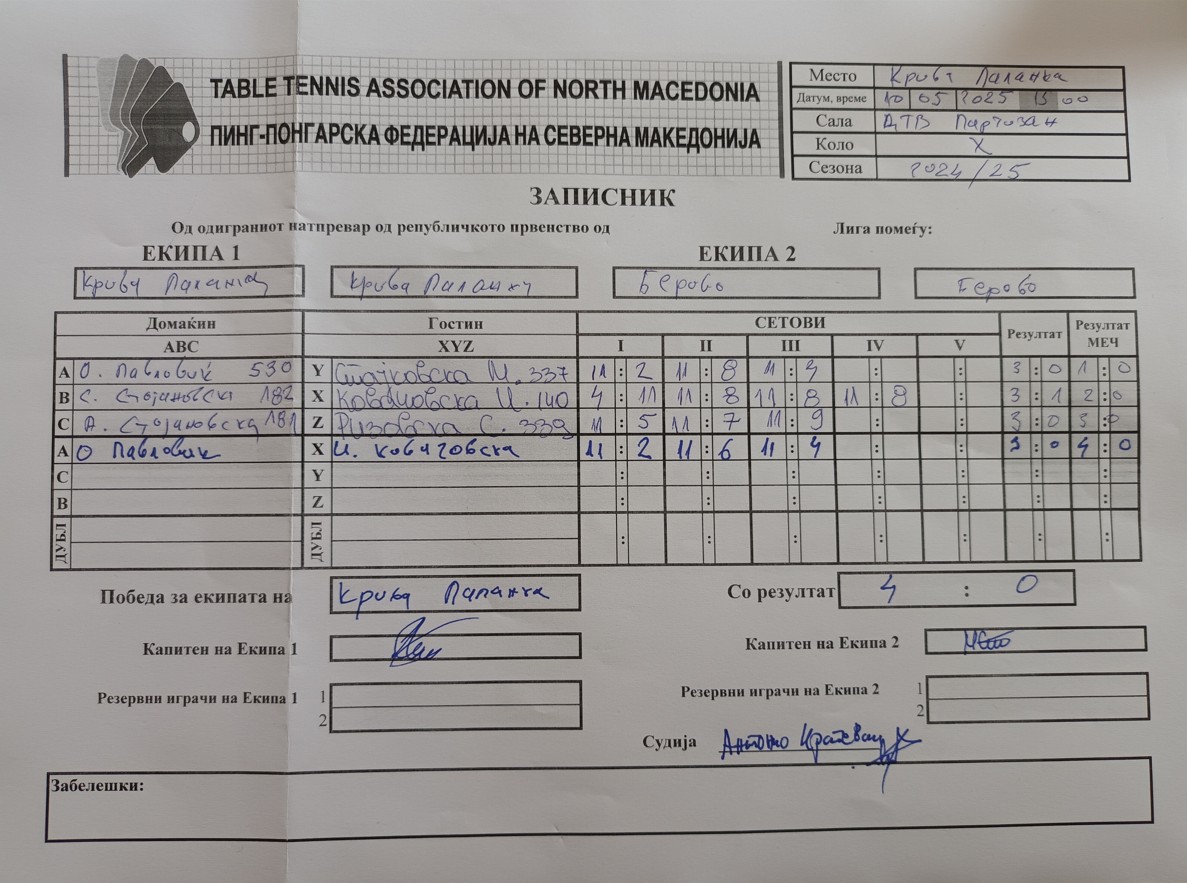 TABLE TENNIS ASSOCIATION OF NORTH MACEDONIA
ПИНГ-ПОНГАРСКА ФЕДЕРАЦИЈА НА СЕВЕРНА МАКЕДОНИЈА
Место Крива Паланка
Датум, време 10 05 2025 13 00
Сала ДТВ Партизан
Коло X
Сезона 2024/25
ЗАПИСНИК
Од одиграниот натпревар од републичкото првенство од Лига помеѓу:
ЕКИПА 1 ЕКИПА 2
Крива Паланка Крива Паланка Берово Берово
Домаќин Гостин СЕТОВИ Резултат Резултат МЕЧ
ABC XYZ I II III IV V
A О. Павловиќ 530 Y Стајковска М. 337 11 : 2 11 : 8 11 : 4 : : 3 : 0 1 : 0
B С. Стојановска 182 X И. 140 4 : 11 11 : 8 11 : 8 11 : 8 : 3 : 1 2 : 0
C А. Стојановска 181 Z Ризовска С. 339 11 : 5 11 : 7 11 : 9 : : 3 : 0 3 : 0
A О Павловиќ X И. 11 : 2 11 : 6 11 : 4 : : 3 : 0 4 : 0
C Y : : : : : : :
B Z : : : : : : :
ДУБЛ ДУБЛ : : : : : : :
Победа за екипата на Крива Паланка Со резултат 4 : 0
Капитен на Екипа 1 Капитен на Екипа 2
Резервни играчи на Екипа 1 1 Резервни играчи на Екипа 2 1
2 2
Судија Антонио
Забелешки: